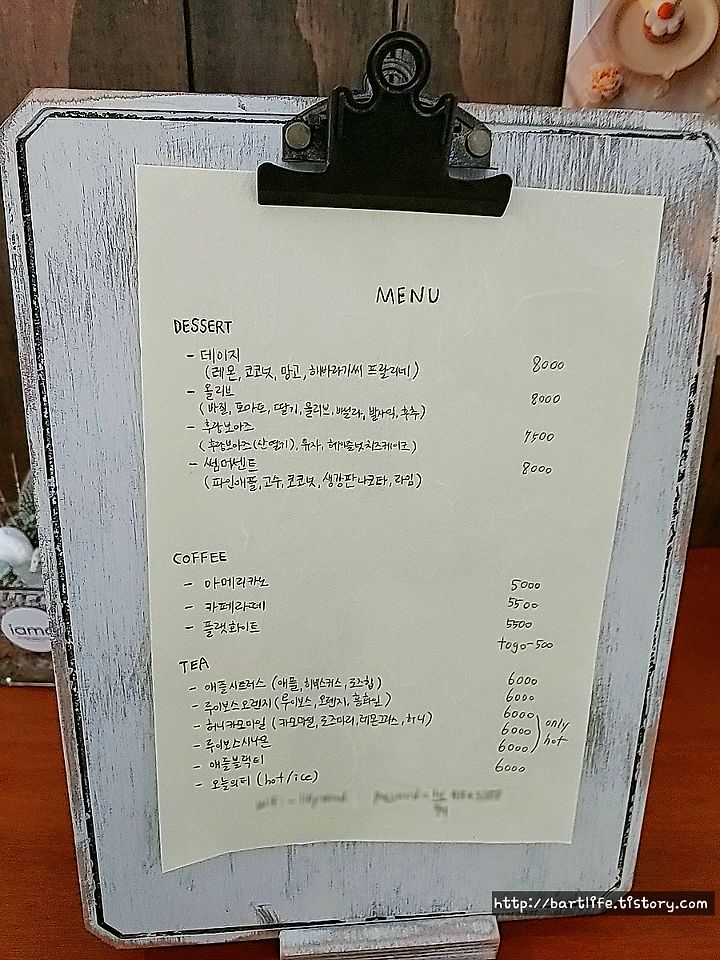 MENU
DESSERT
- 데이지
(레몬, 코코넛, 망고, 해바라기씨 프랄리네) 8000
- 올리브
(바질, 토마토, 딸기, 올리브, 바닐라, 발사믹, 후추) 8000
- 후랑보아즈
(후랑보아즈(산딸기), 유자, 헤이즐넛치즈케이크) 7500
- 썸머센트
(파인애플, 고수, 코코넛, 생강판나코타, 라임) 8000
COFFEE
- 아메리카노 5000
- 카페라떼 5500
- 플랫화이트 5500
togo-500
TEA
- 애플시트러스 (애플, 히비스커스, 로즈힙) 6000
- 루이보스오렌지 (루이보스, 오렌지, 홍화잎) 6000
- 허니카모마일 (카모마일, 로즈마리, 레몬그라스, 허니) 6000
- 루이보스시나몬 6000
- 애플블랙티 6000
only hot
- 오늘의티 (hot/ice) 6000
http://bartlife.tistory.com